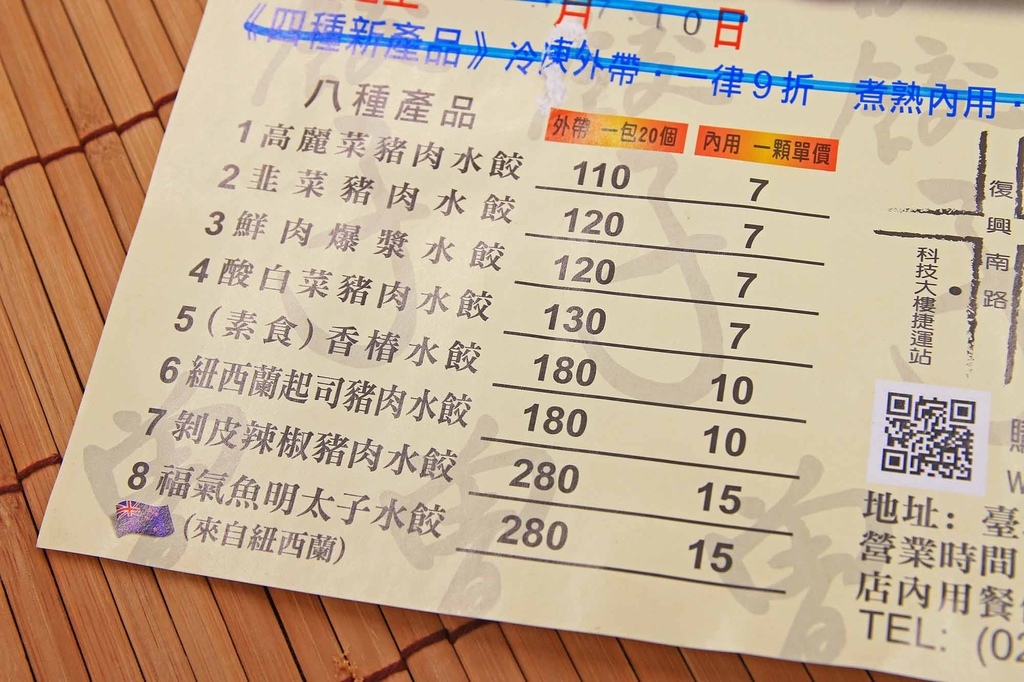 月 7.10日
《四種新產品》冷凍外帶·一律9折 煮熟內用·
八種產品
外帶 一包20個 內用 一顆單價
1 高麗菜豬肉水餃 110 7
2 韭菜豬肉水餃 120 7
3 鮮肉爆漿水餃 120 7
4 酸白菜豬肉水餃 130 7
5 (素食)香椿水餃 180 10
6 紐西蘭起司豬肉水餃 180 10
7 剝皮辣椒豬肉水餃 280 15
8 福氣魚明太子水餃 280 15
(來自紐西蘭)
復興南路
科技大樓捷運站
地址: 臺
營業時間
店內用餐
TEL: (02